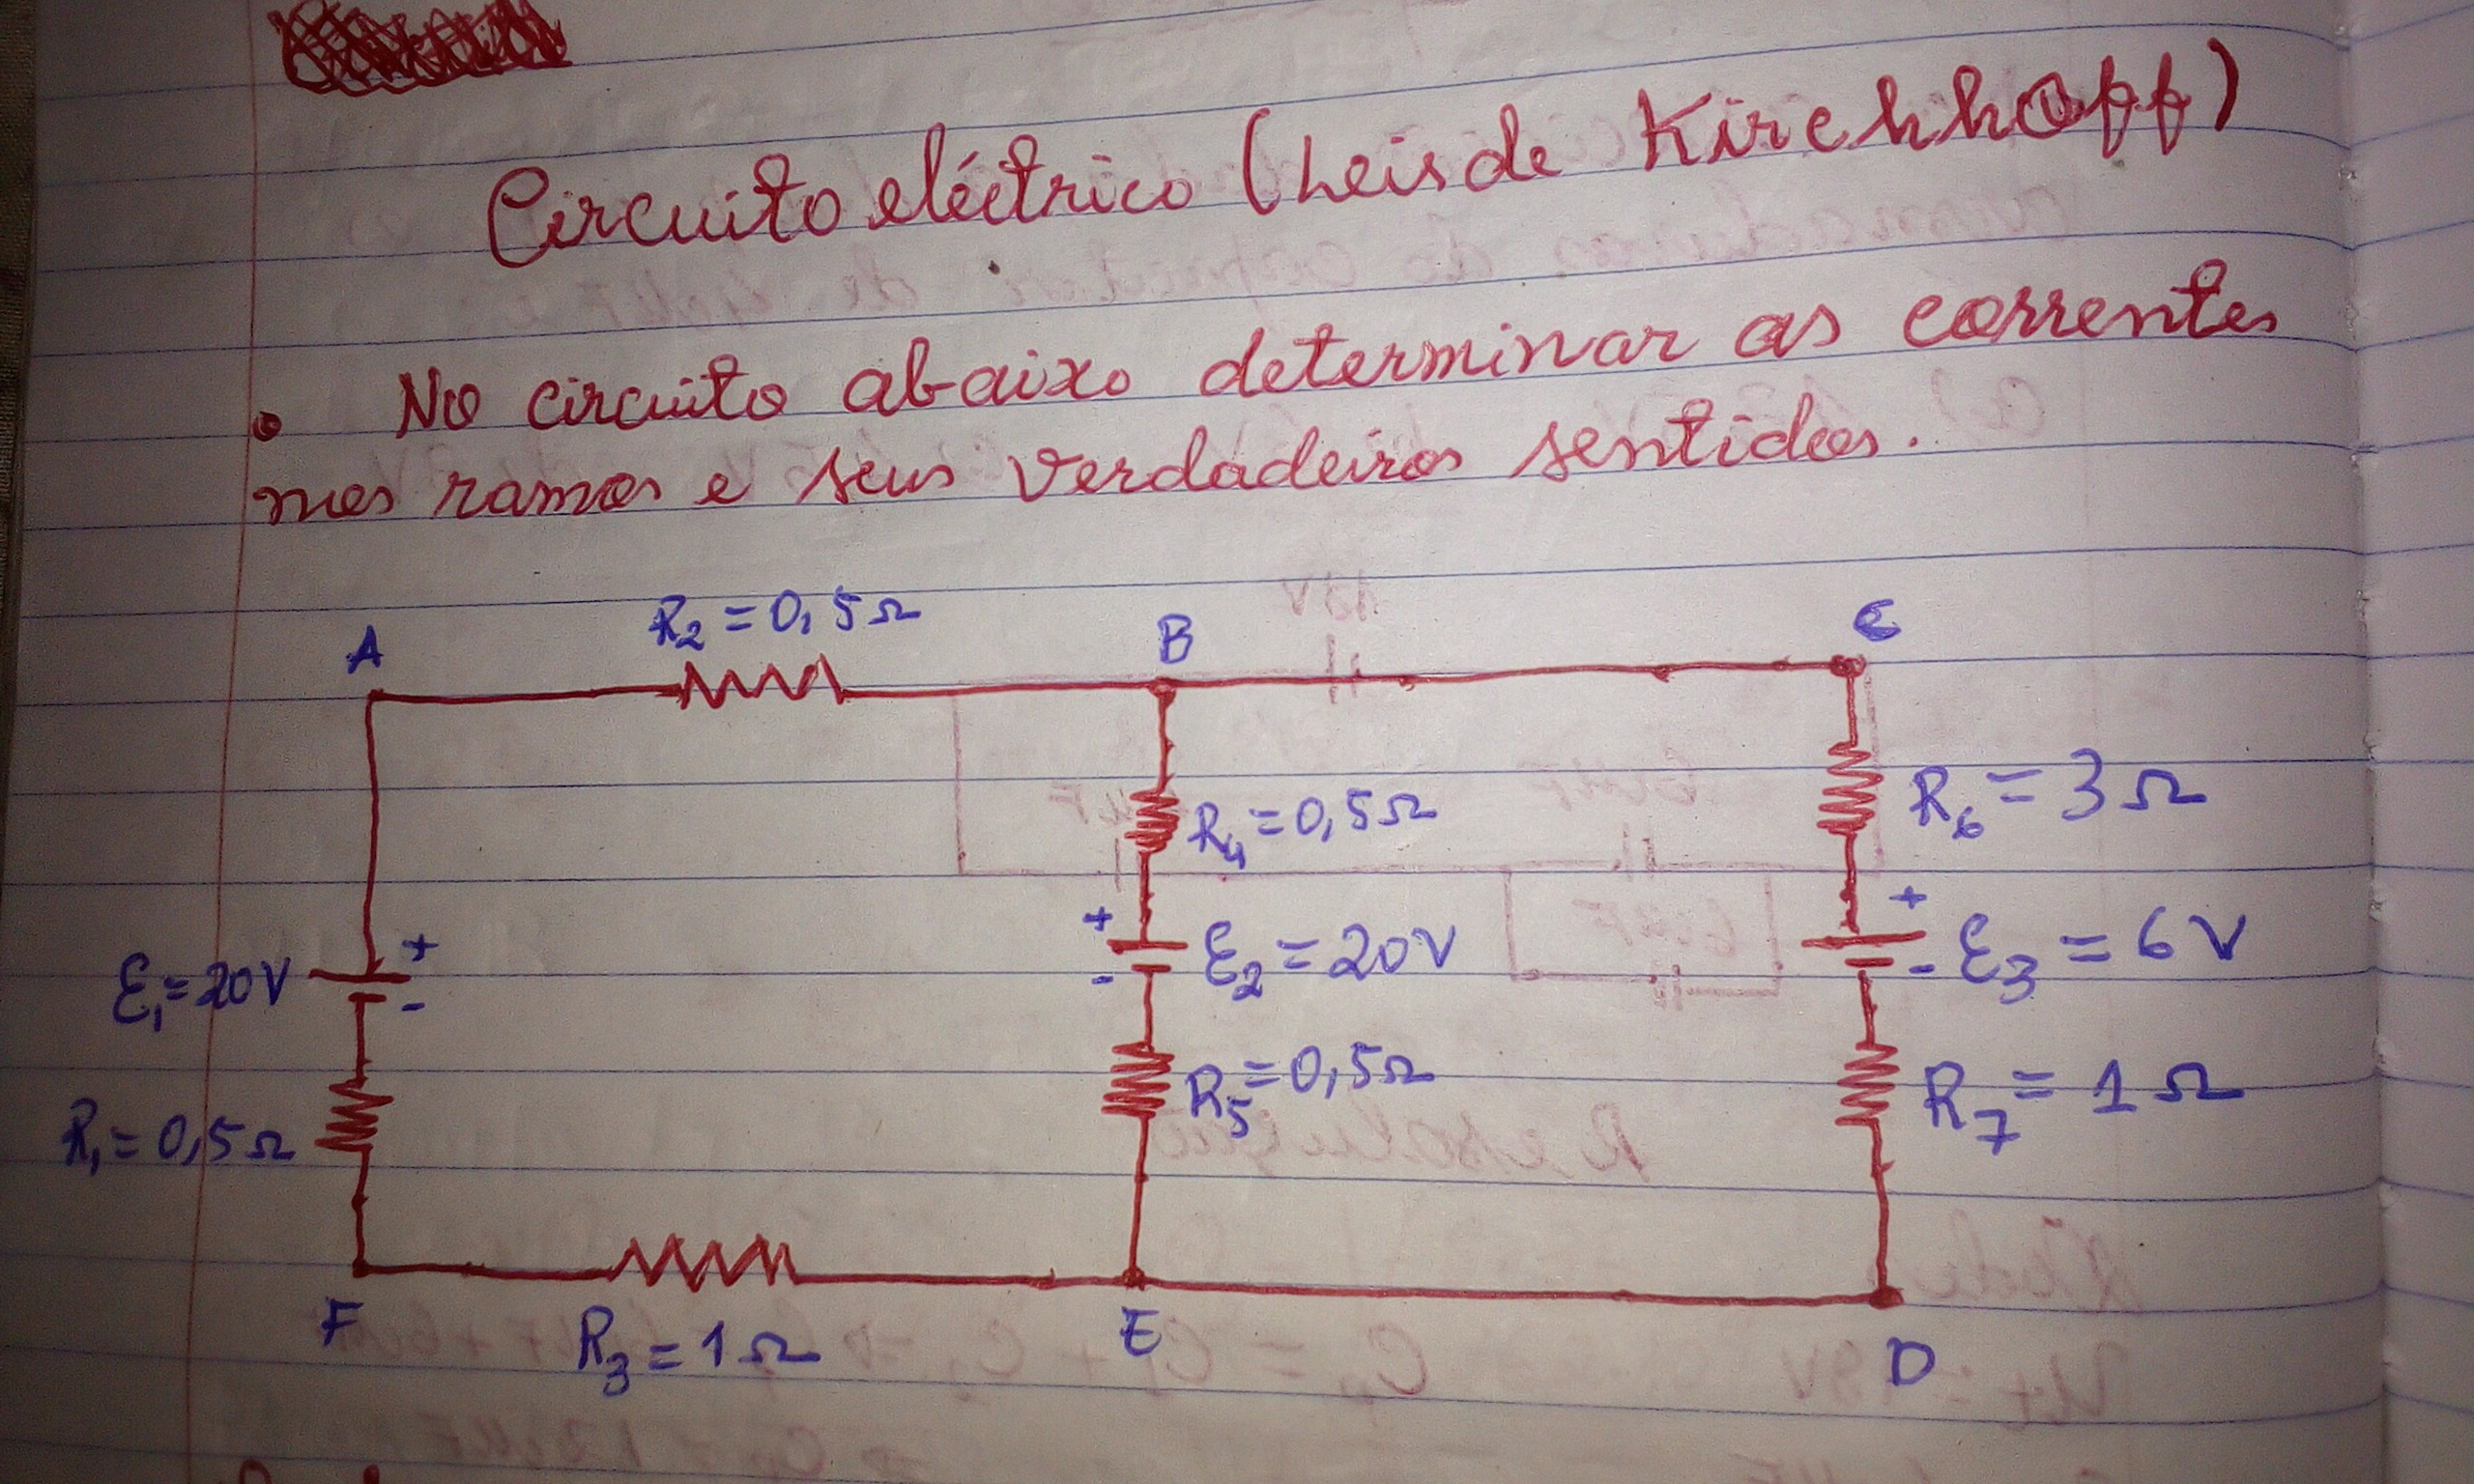 Circuito eléctrico (Leis de Kirchhoff)
• No circuito abaixo determinar as correntes
nos ramos e seus verdadeiros sentidos.
R2 = 0,5Ω
A
B
C
R4 = 0,5Ω
R6 = 3Ω
+
+
+
ε1 = 20V
ε2 = 20V
ε3 = 6V
-
-
-
R1 = 0,5Ω
R5 = 0,5Ω
R7 = 1Ω
F
E
D
R3 = 1Ω